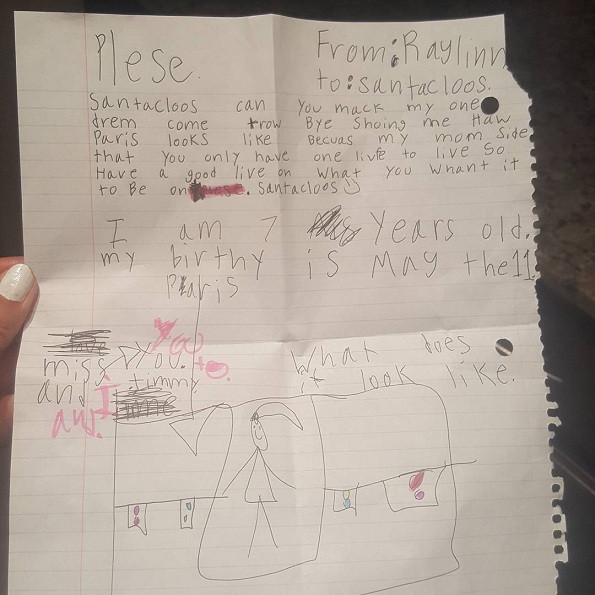 Plese.
From: Raylinn
to: santacloos.
Santacloos can you mack my one
drem come trow Bye Shoing me Haw
Paris looks like Becuas my mom Side
that you only have one live to live So
Have a good live on What you Whant it
to Be on. Santacloos
I am 7 Years old.
my birthy is May the 11
Paris
miss You.
and I timmy
and.
What does
it look like.